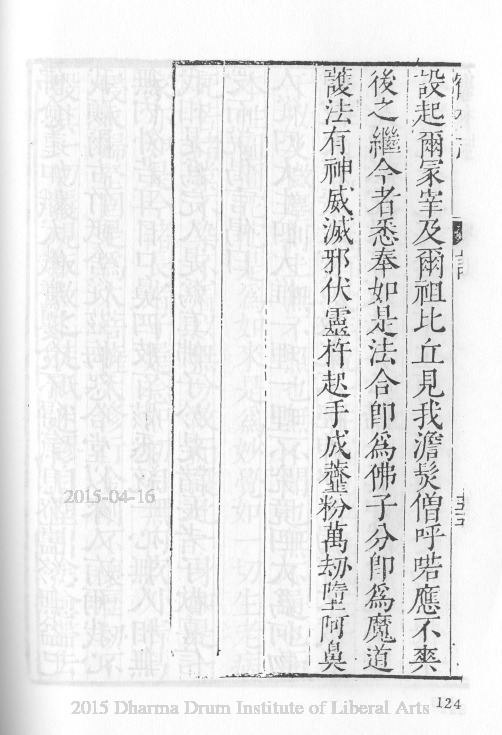 設起爾家宰及爾祖比丘見我澹髮僧呼喏應不爽
後之繼今者悉奉如是法合卽爲佛子分卽爲魔道
護法有神威滅邪伏靈杵起手成虀粉萬劫墮阿鼻
2015-04-16
124
2015 Dharma Drum Institute of Liberal Arts